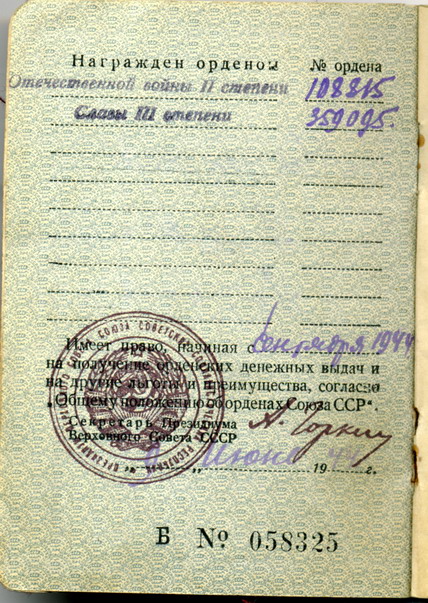 Награжден орденом № ордена
Отечественной войны II степени 108815
Славы III степени 359095.
Имеет право, начиная с сентября 1944
на получение орденских денежных выдач и
на другие льготы и преимущества, согласно
„Общему положению об орденах Союза ССР“.
Секретарь Президиума
Верховного Совета СССР А. Горкин
„ Июня 19 44 г.
Б № 058325